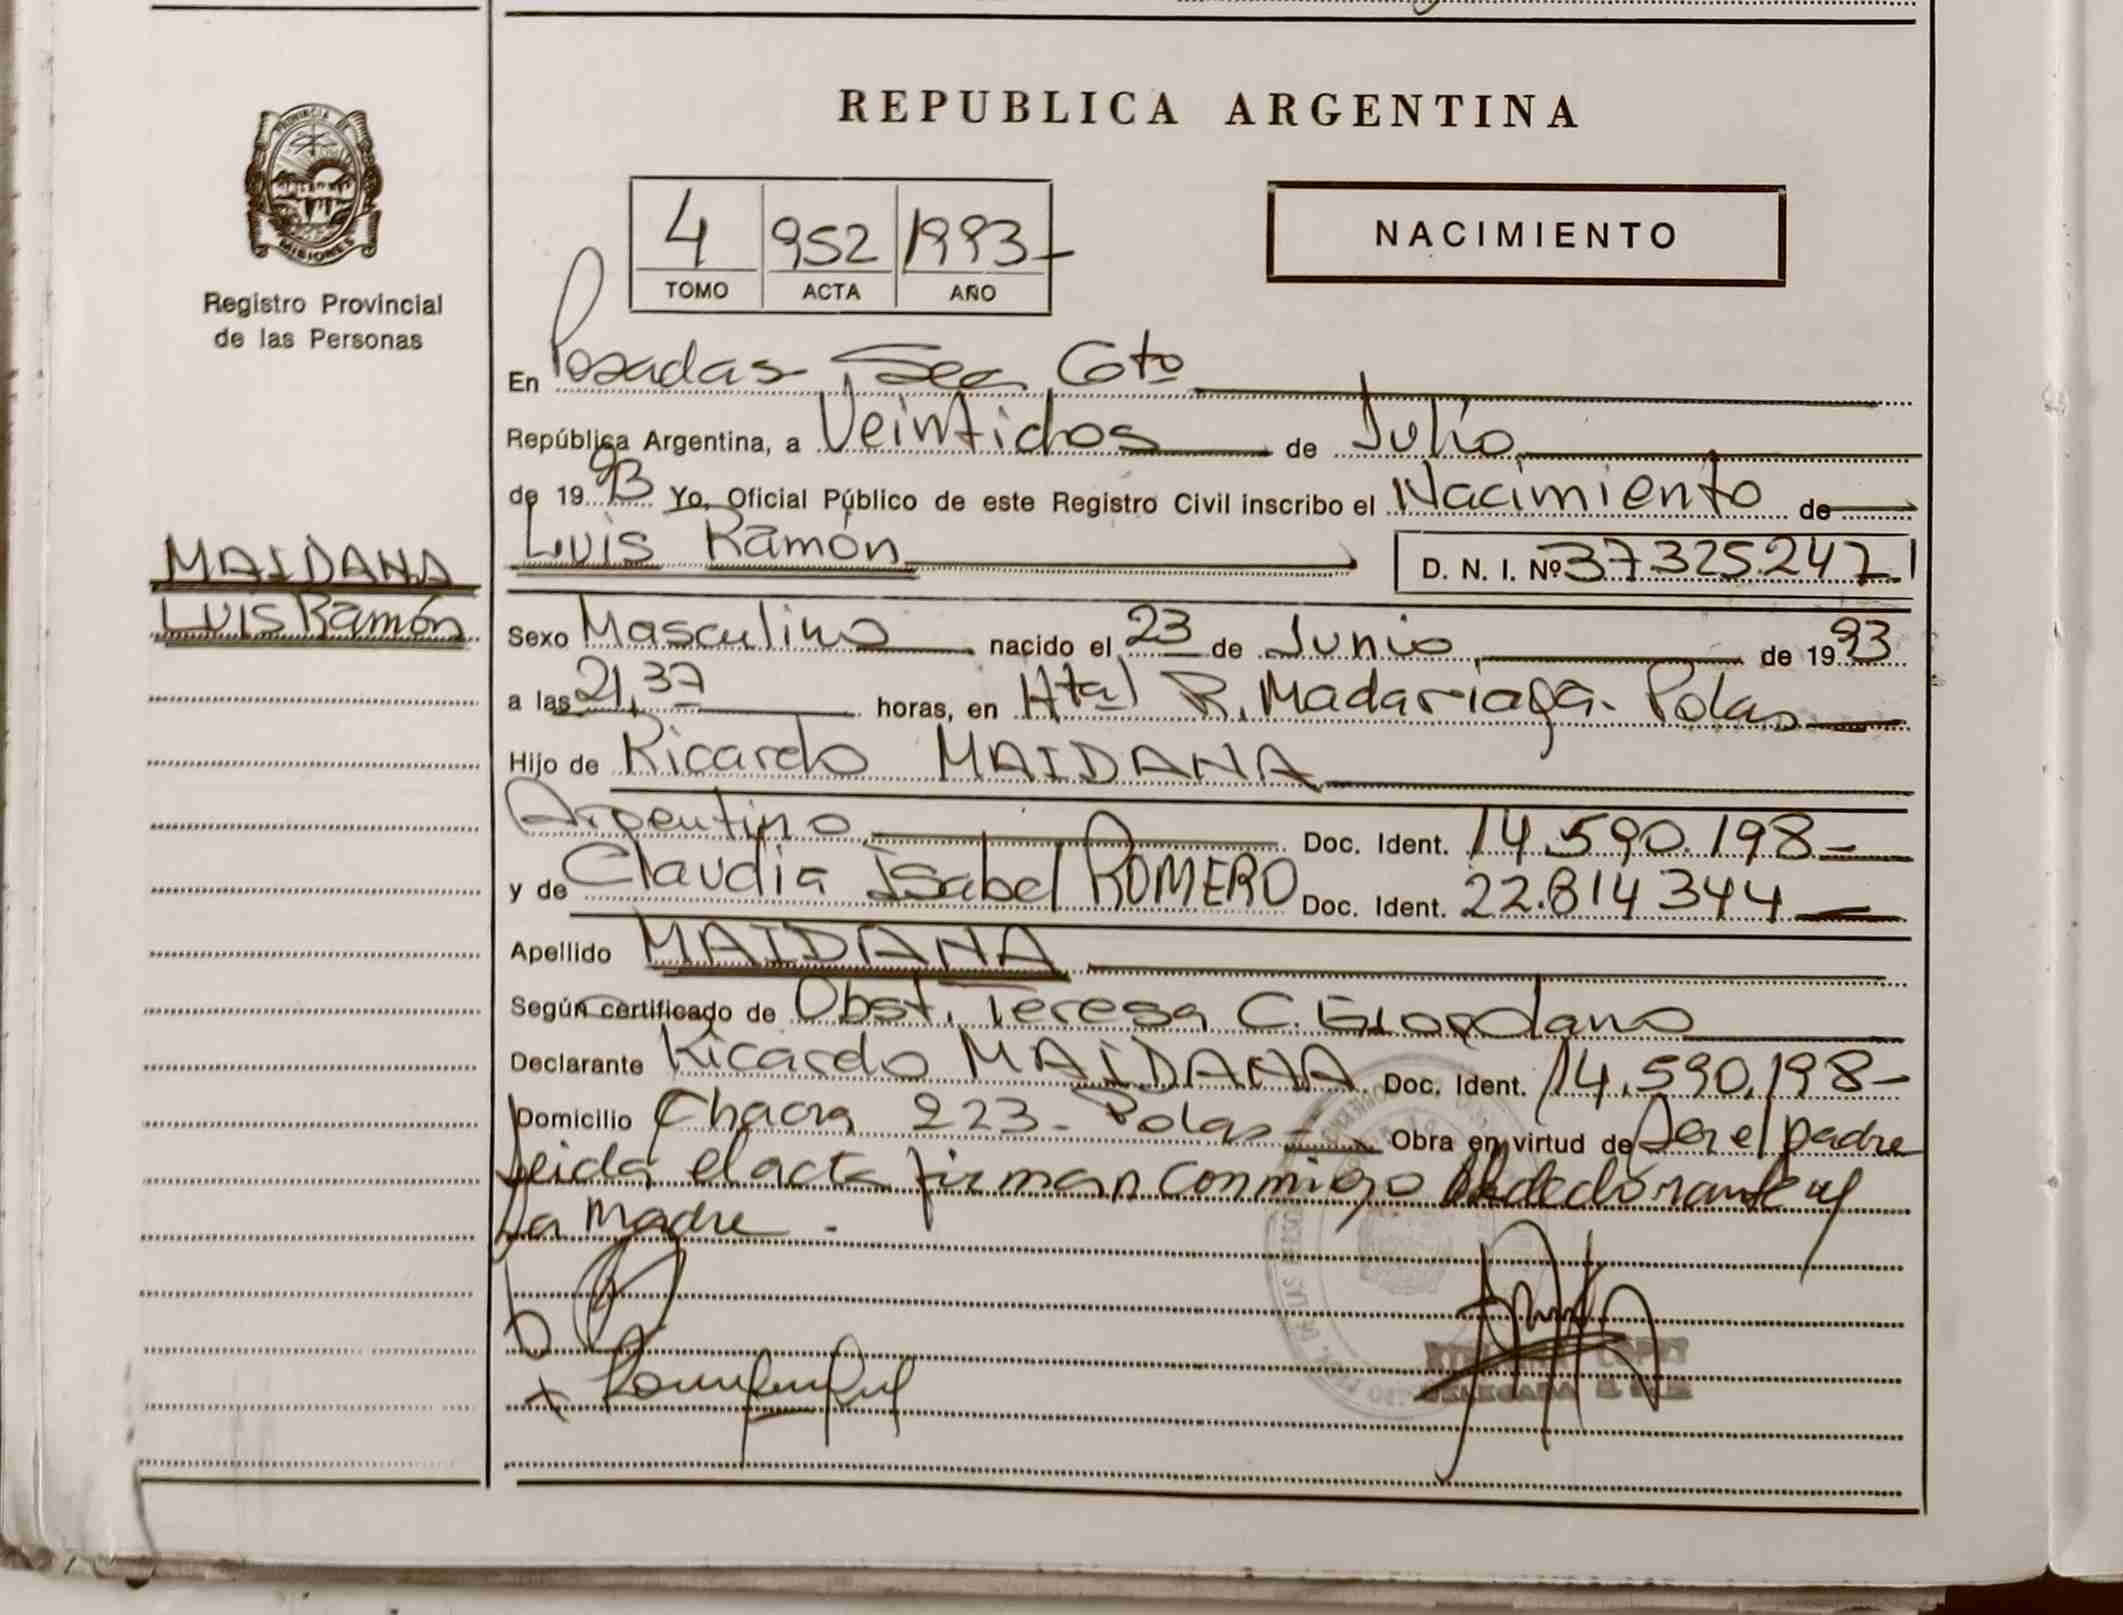 REPUBLICA ARGENTINA
PROVINCIA DE
MISIONES
Registro Provincial
de las Personas
4 952 1993
TOMO ACTA AÑO
NACIMIENTO
En Posadas Sec 6to
República Argentina, a Veintidos de Julio
de 1993 Yo, Oficial Público de este Registro Civil inscribo el Nacimiento de
MAIDANA
Luis Ramón
Luis Ramón D. N. I. Nº 37325.247
Sexo Masculino nacido el 23 de Junio de 1993
a las 21,37 horas, en Htal R. Madariaga - Pdas
Hijo de Ricardo MAIDANA
Argentino Doc. Ident. 14.590.198-
y de Claudia Isabel ROMERO Doc. Ident. 22.814344
Apellido MAIDANA
Según certificado de Obst. Teresa C. Giordano
Declarante Ricardo MAIDANA Doc. Ident. 14.590.198-
Domicilio Chacra 223 - Pdas - Obra en virtud de Ser el padre
Leida el acta firman conmigo declarante y
La Madre.